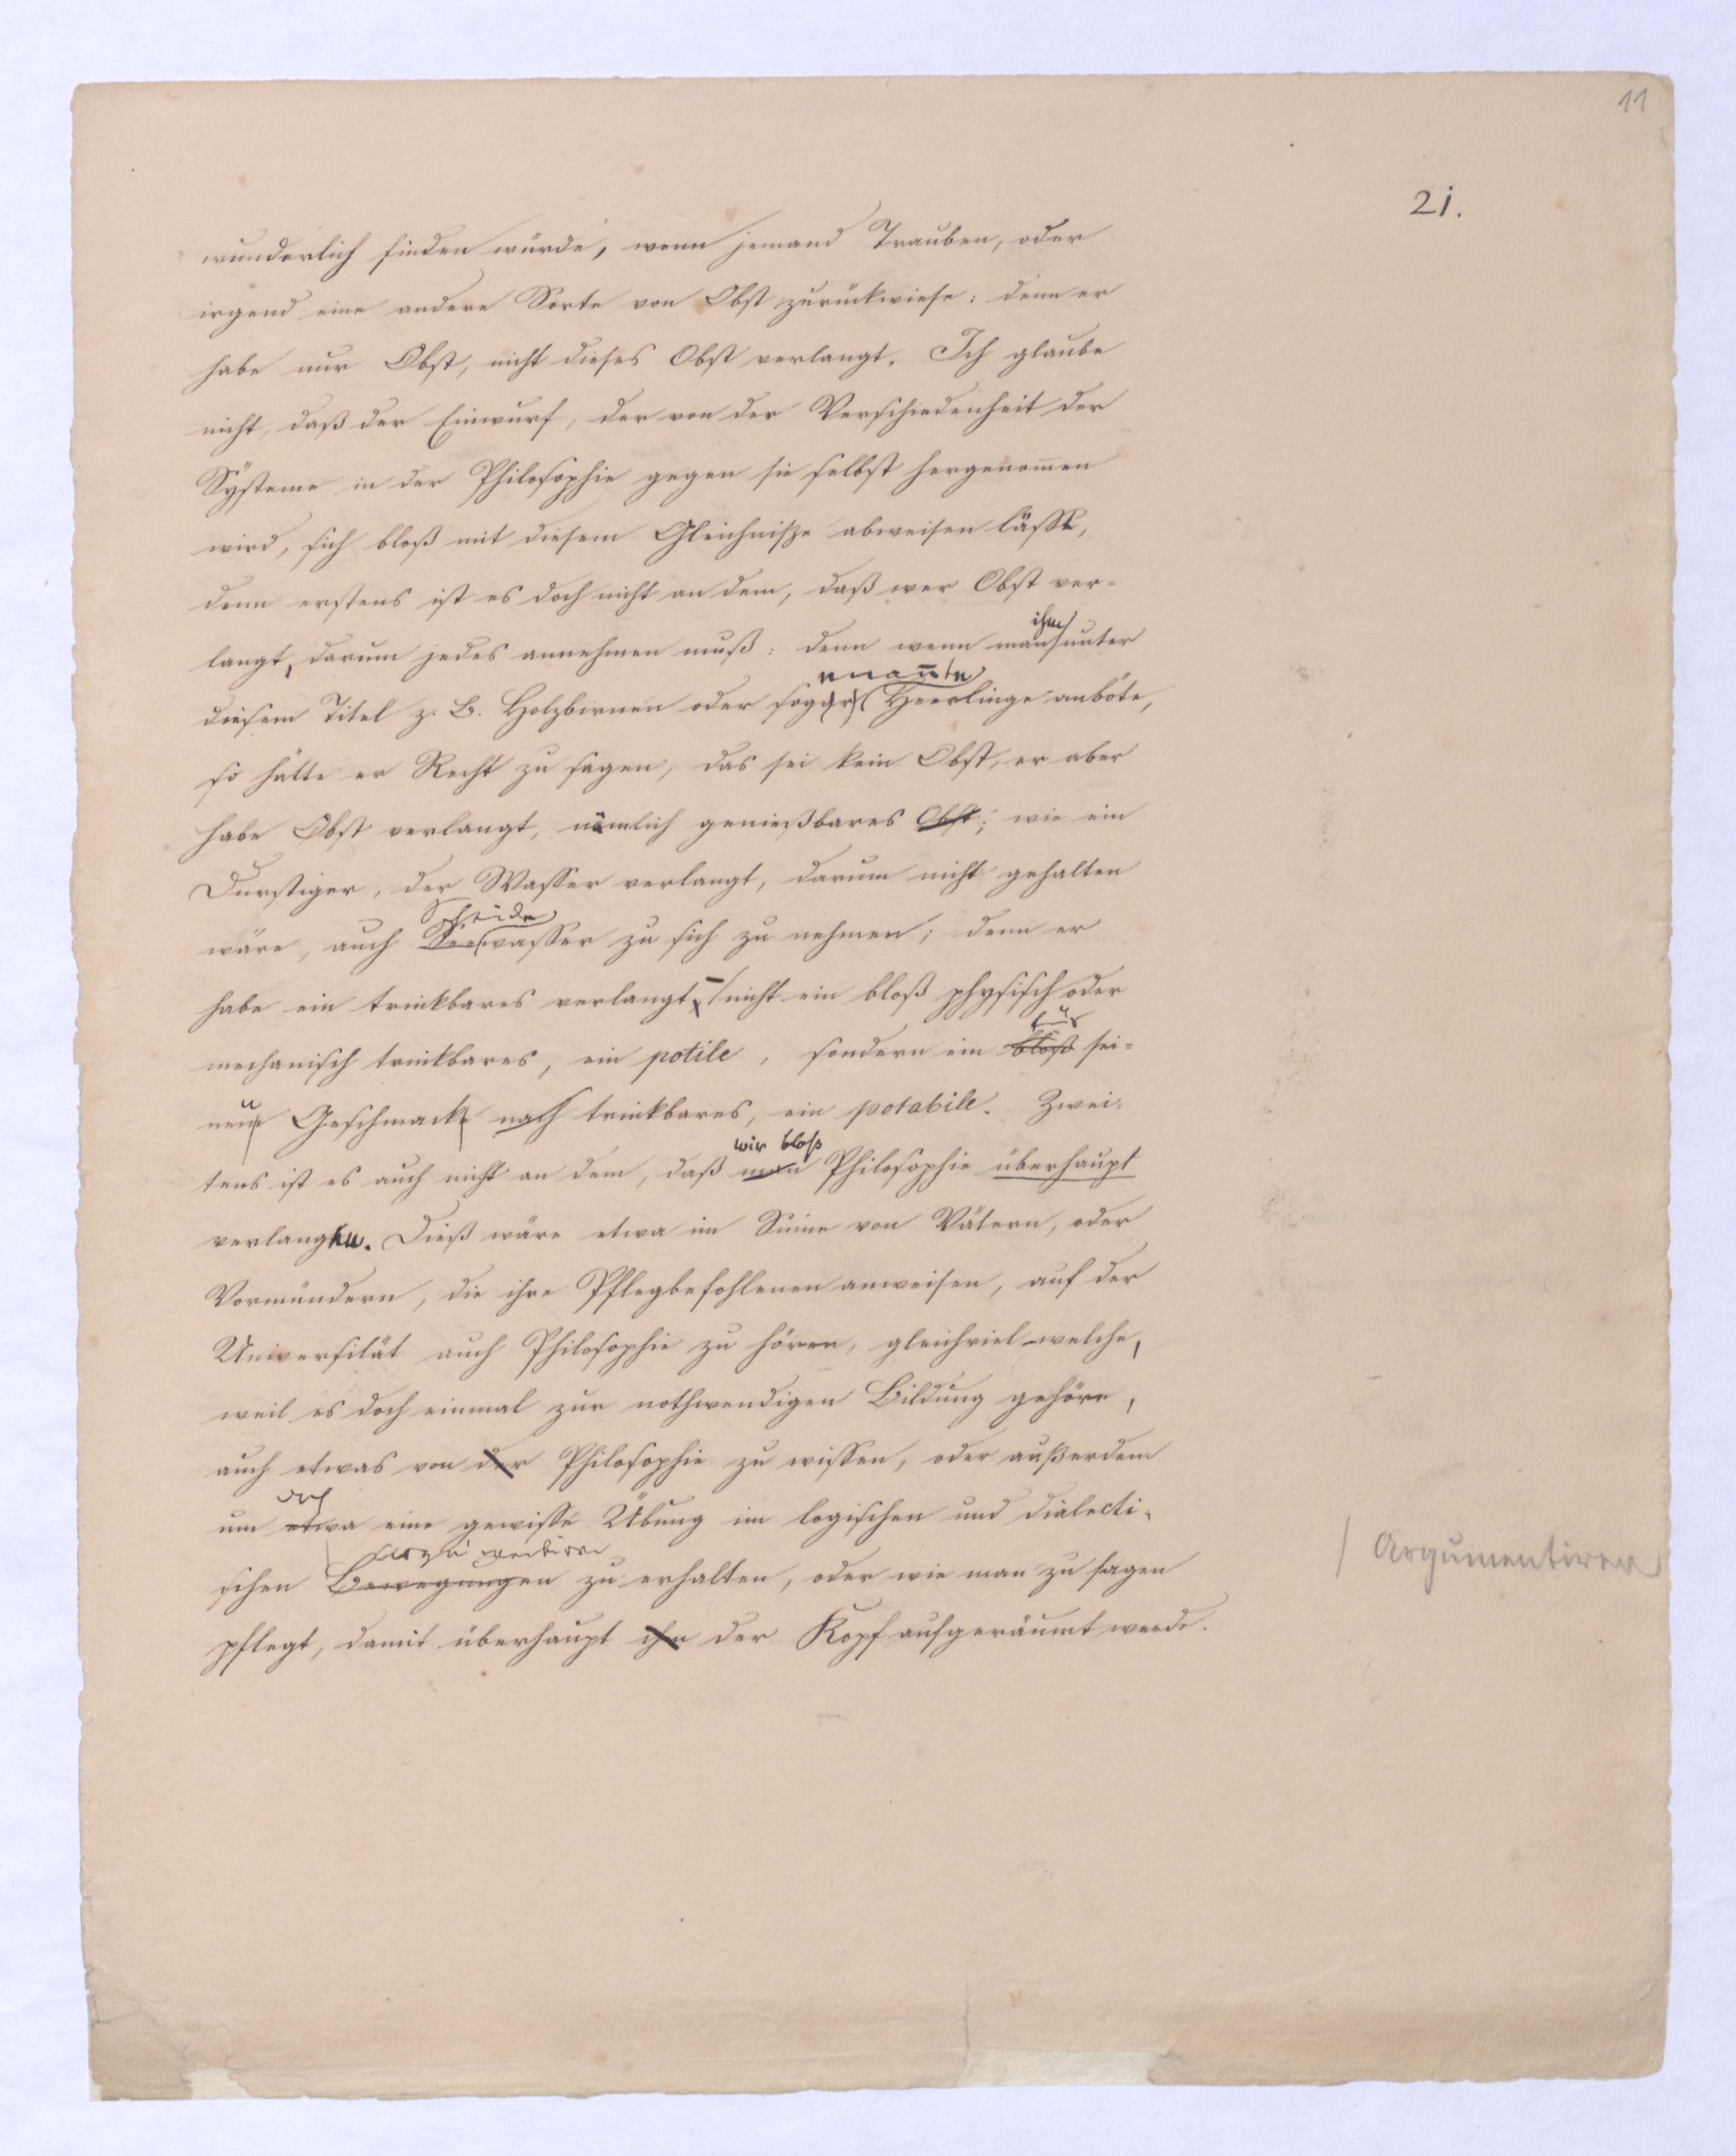 11
21.
wunderlich finden würde, wenn jemand Trauben, oder
irgend eine andere Sorte von Obst zurückwiese: denn er
habe nur Obst, nicht dieses Obst verlangt. Ich glaube
nicht, daß der Einwurf, der von der Verschiedenheit der
Systeme in der Philosophie gegen sie selbst hergenom̄en
wird, sich bloß mit diesem Gleichniße abweisen läßt,
denn erstens ist es doch nicht an dem, daß wer Obst ver-
langt, darum jedes annehmen muß: denn wenn man ihm unter
diesem Titel z. B. Holzbirnen oder sogenan̄te Heerlinge anböte,
so hätte er Recht zu sagen, das sei kein Obst, er aber
habe Obst verlangt, nämlich genießbares Obst; wie ein
Durstiger, der Wasser verlangt, darum nicht gehalten
wäre, auch Scheidewasser zu sich zu nehmen; denn er
habe ein trinkbares verlangt – nicht ein bloß physisch oder
mechanisch trinkbares, ein potile, sondern ein bloß für sei-
nen Geschmack nach trinkbares, ein potabile. Zwei-
tens ist es auch nicht an dem, daß man wir bloß Philosophie überhaupt
verlangen. Dieß wäre etwa im Sinne von Vätern, oder
Vormündern, die ihre Pflegbefohlenen anweisen, auf der
Universität auch Philosophie zu hören, gleichviel welche,
weil es doch einmal zur nothwendigen Bildung gehöre,
auch etwas von der Philosophie zu wissen, oder außerdem
um etwa doch eine gewisse Übung im logischen und dialecti-
schen Bewegungen zu erhalten, oder wie man zu sagen
pflegt, damit überhaupt ihn der Kopf aufgeräumt werde.
Argumentiren